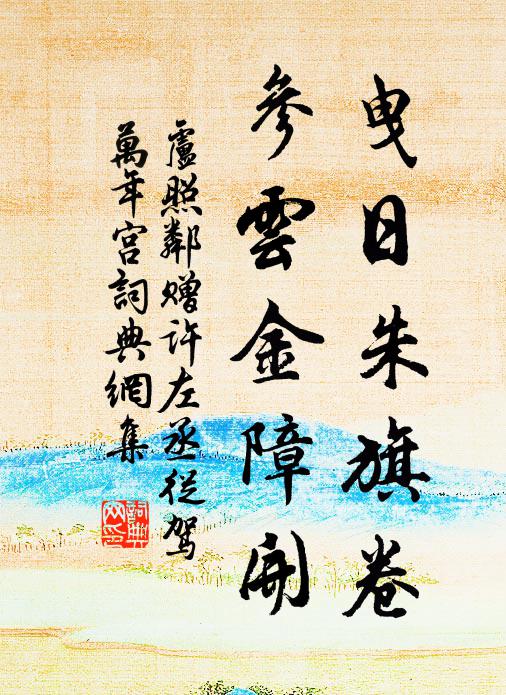 曳日朱旗卷
參雲金障開
盧照鄰贈許左丞從駕
萬年宮詞典網集
詞典